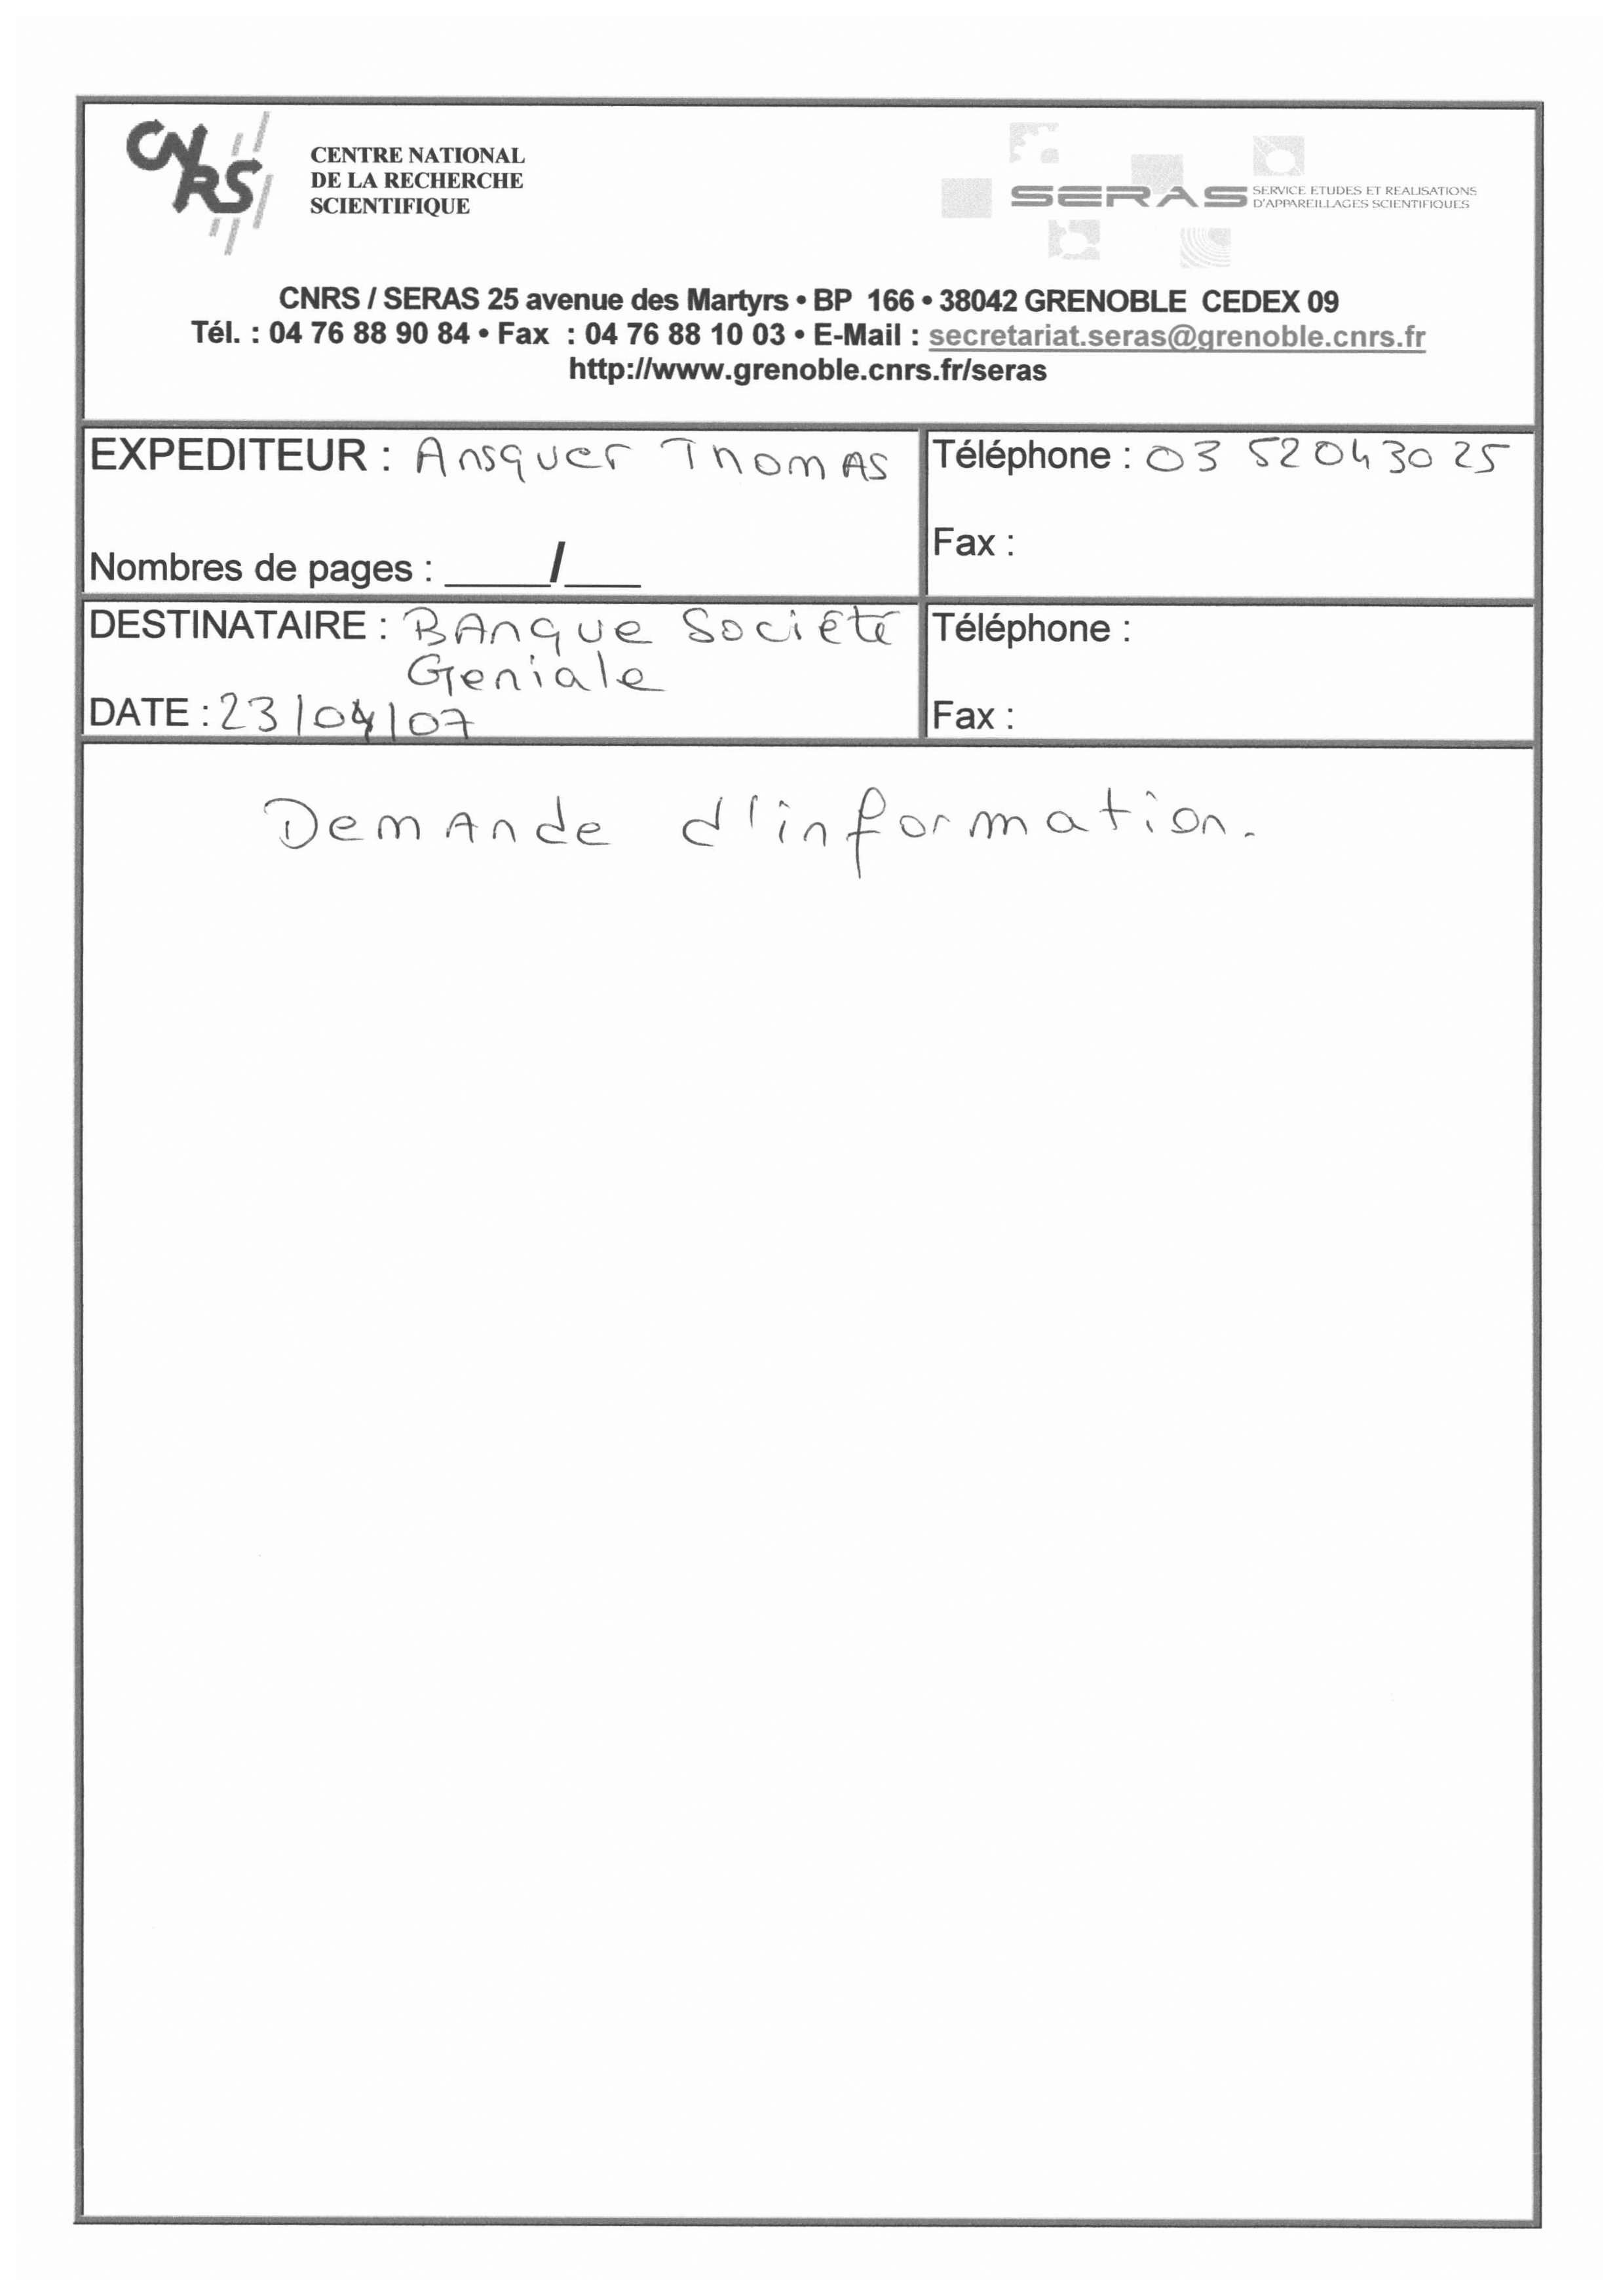 CNRS
CENTRE NATIONAL
DE LA RECHERCHE
SCIENTIFIQUE
SERAS SERVICE ETUDES ET REALISATIONS
D'APPAREILLAGES SCIENTIFIQUES
CNRS / SERAS 25 avenue des Martyrs • BP 166 • 38042 GRENOBLE CEDEX 09
Tél. : 04 76 88 90 84 • Fax : 04 76 88 10 03 • E-Mail : secretariat.seras@grenoble.cnrs.fr
http://www.grenoble.cnrs.fr/seras
EXPEDITEUR : Ansquer Thomas
Téléphone : 03 52 04 30 25
Fax :
Nombres de pages : ____/___
DESTINATAIRE : BAnque Société
Geniale
Téléphone :
DATE : 23/04/07
Fax :
Demande d'information.